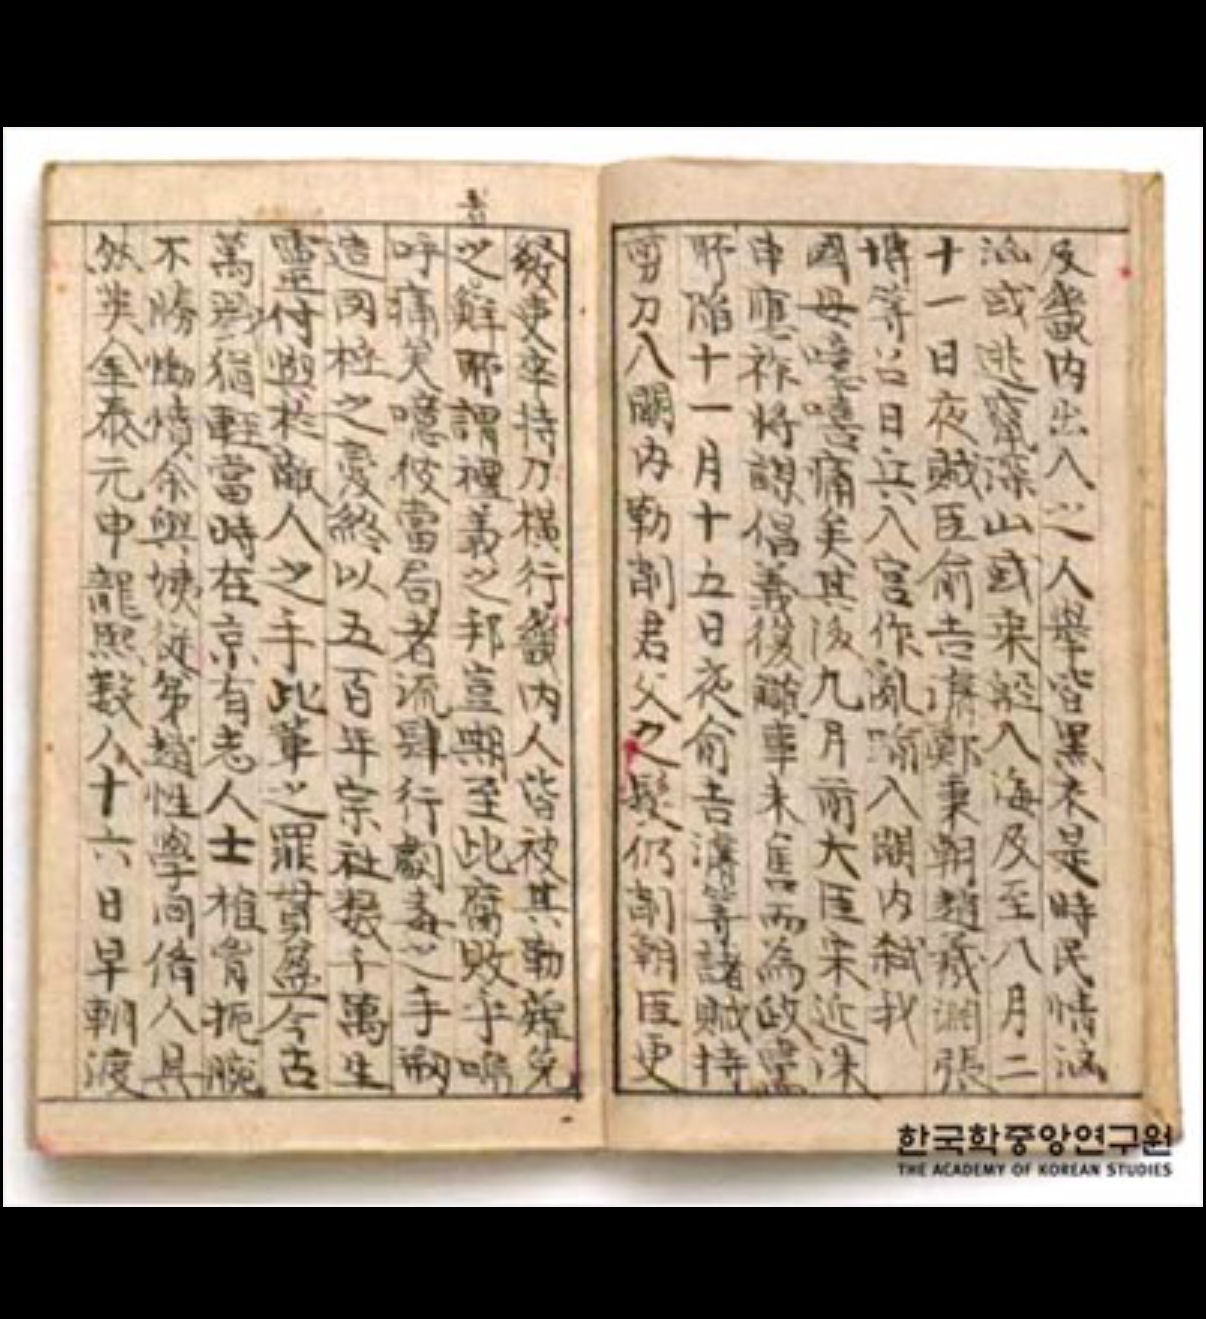 及畿內出入之人擧皆黑衣是時民情洶
洶或逃竄深山或乘船入海及至八月二
十一日夜賊臣俞吉濬鄭秉朝趙羲淵張
博等召日兵入宮作亂踰入闕內弑我
國母噫嘻痛矣其後九月前大臣宋近洙
申應祚將謀倡義後  事未售而爲政
所陷十一月十五日夜俞吉濬等諸賊持
剪刀入闕內勒削君父之髮仍削朝臣更
發吏卒持刀橫行畿內人皆被其勒難免
之鮮所謂禮義之邦豈期至此腐敗乎嗚
呼痛矣噫彼當局者流肆行劇毒之手
遣國 之憂終以五百年宗社數千萬生
靈付與於敵人之手此輩之罪貫盈今古
萬戮猶輕當時在京有志人士椎胷扼腕
不勝慟憤余與姨從弟趙性學同脩人具
然英金泰元申龍熙數人十六日早朝渡
한국학중앙연구원
THE ACADEMY OF KOREAN STUDIES